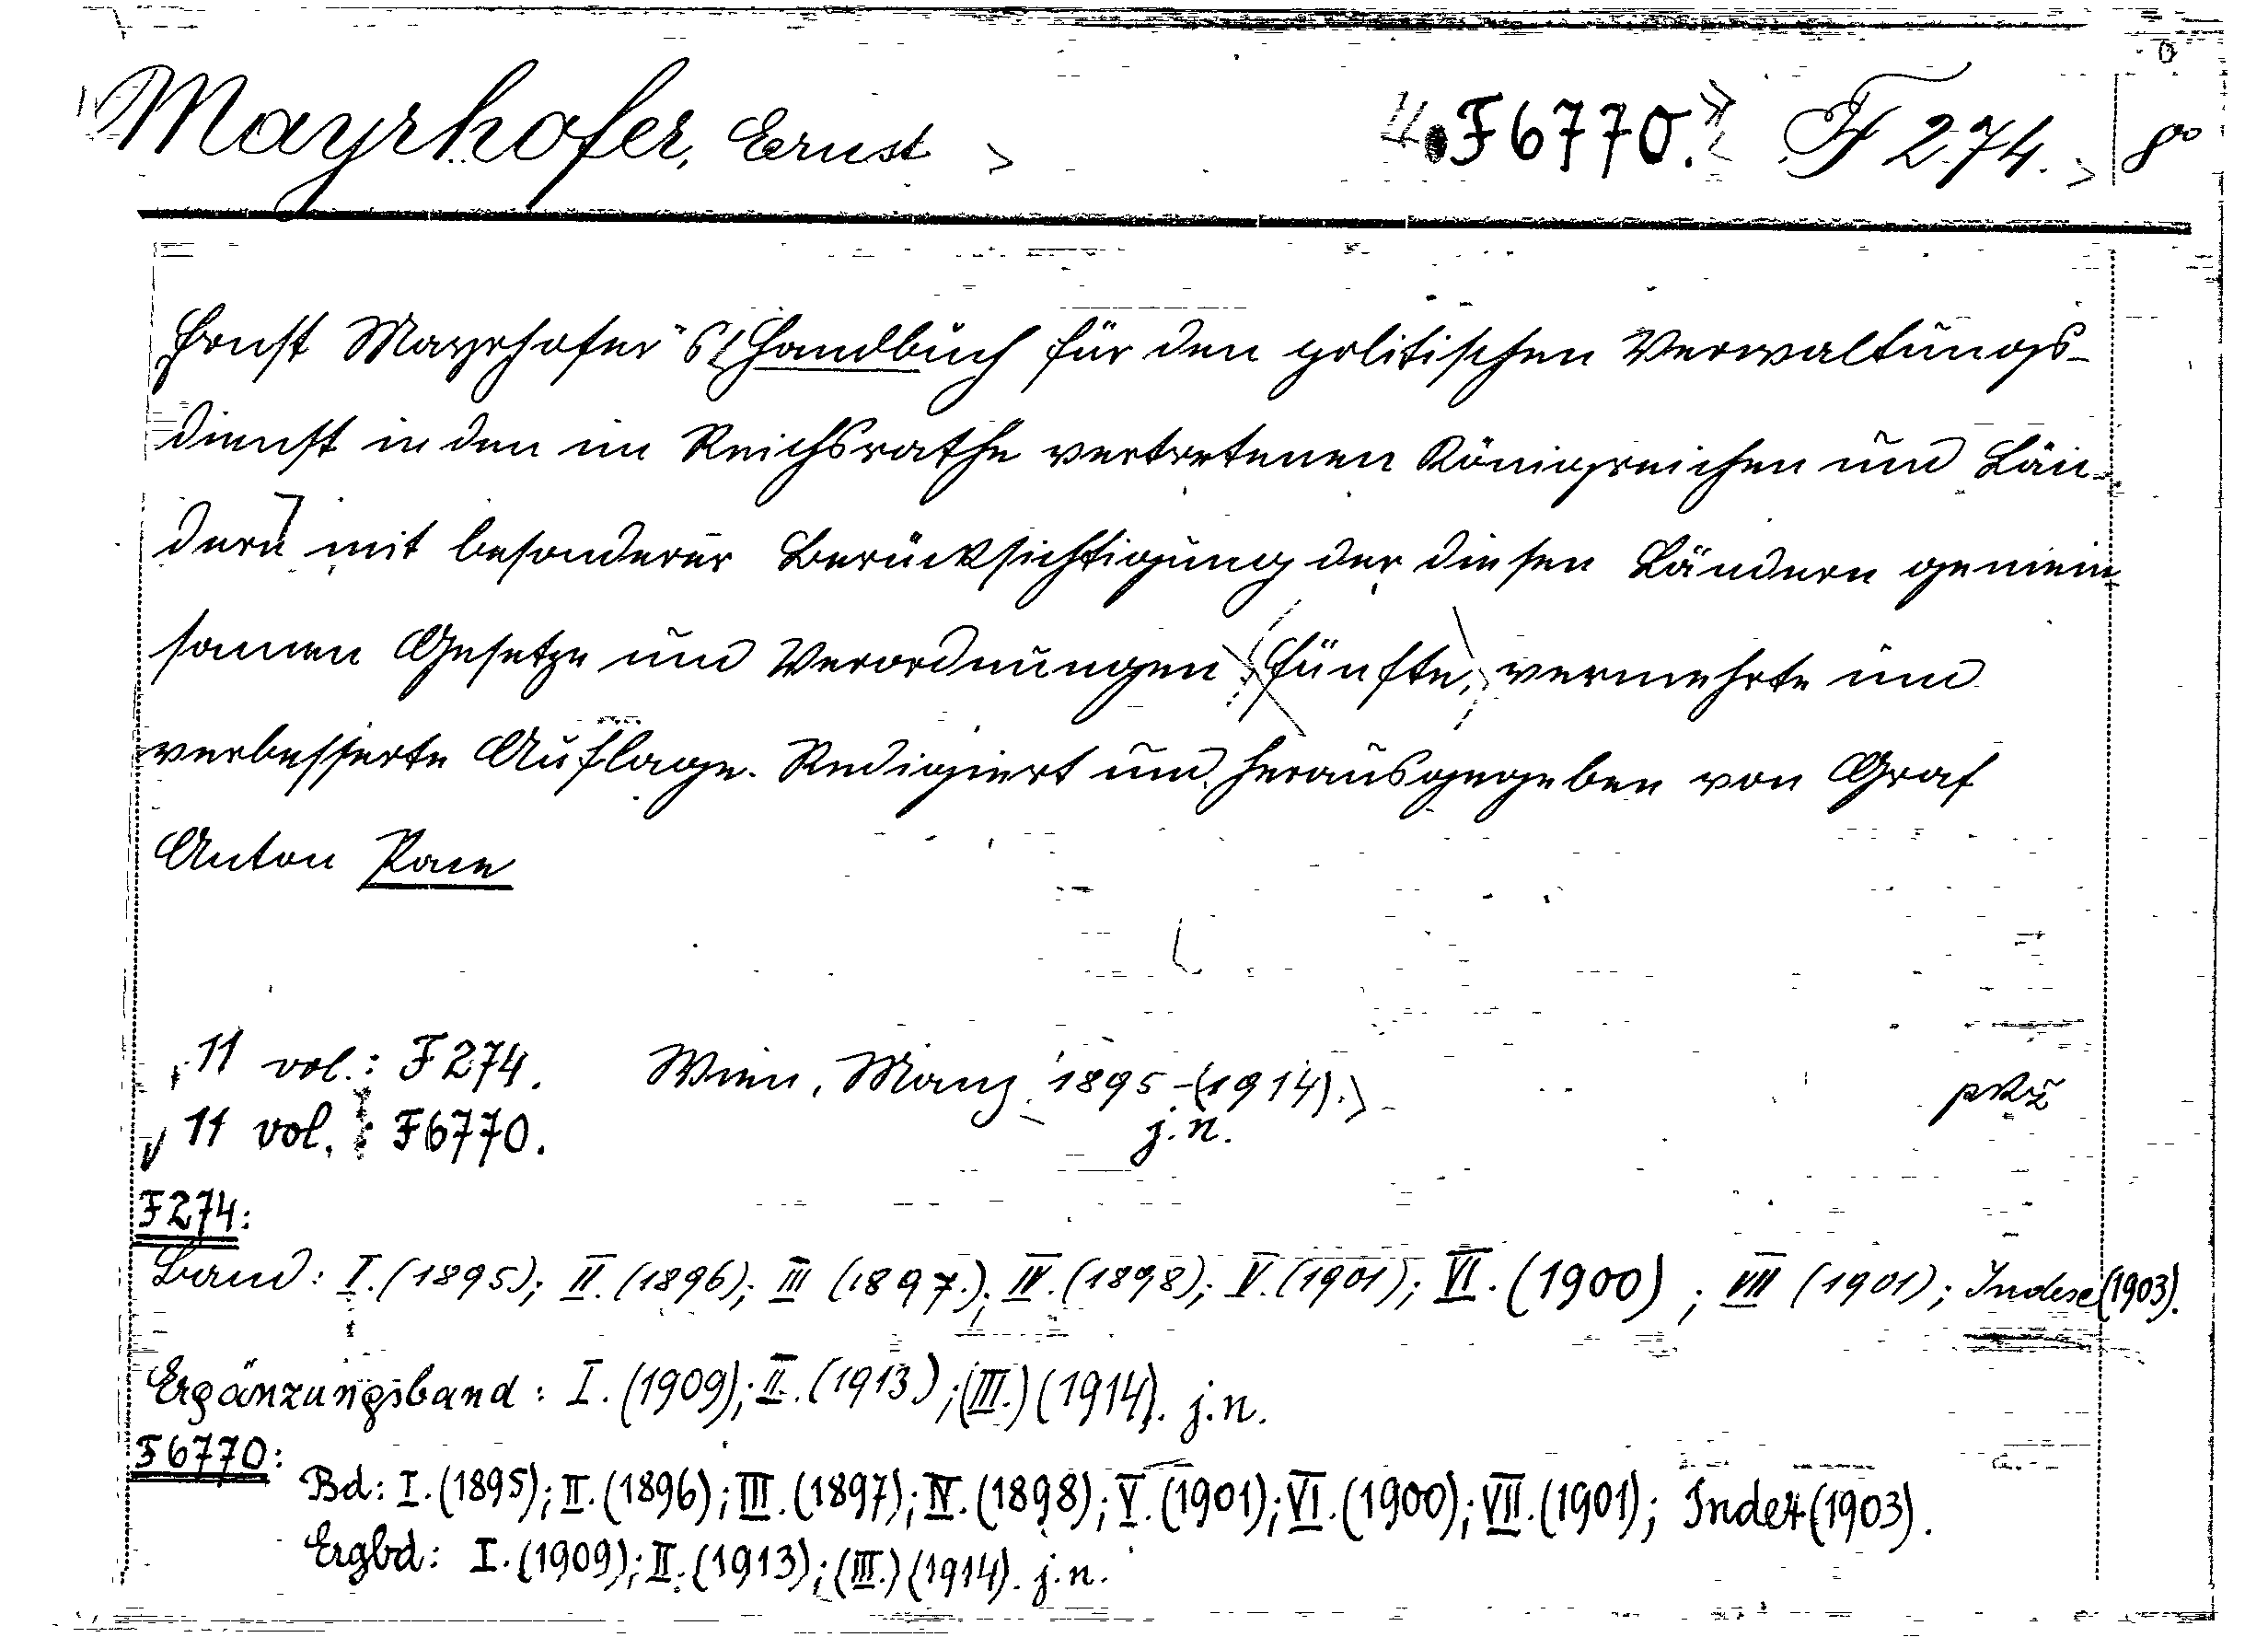 Mayrhofer, Ernst F6770. F 274. 8°
Ernst Mayrhofer's Handbuch für den politischen Verwaltungs-
dienst in den im Reichsrathe vertretenen Königreichen und Län-
dern mit besonderer Berücksichtigung der diesen Ländern gemein-
samen Gesetze und Verordnungen fünfte, vermehrte und
verbesserte Auflage. Redigiert und herausgegeben von Graf
Anton Pace
11 vol.: F 274. Wien, Manz 1895-(1914).
11 vol.: F6770. j.n.
F274:
Band: I. (1895); II. (1896); III (1897.); IV. (1898); V. (1901); VI. (1900); VII (1901); Index (1903).
Ergänzungsband: I. (1909); II. (1913); (III.) (1914). j.n.
F6770:
Bd: I. (1895); II. (1896); III. (1897); IV. (1898); V. (1901); VI. (1900); VII. (1901); Index (1903).
Ergbd: I. (1909); II. (1913); (III.) (1914). j.n.